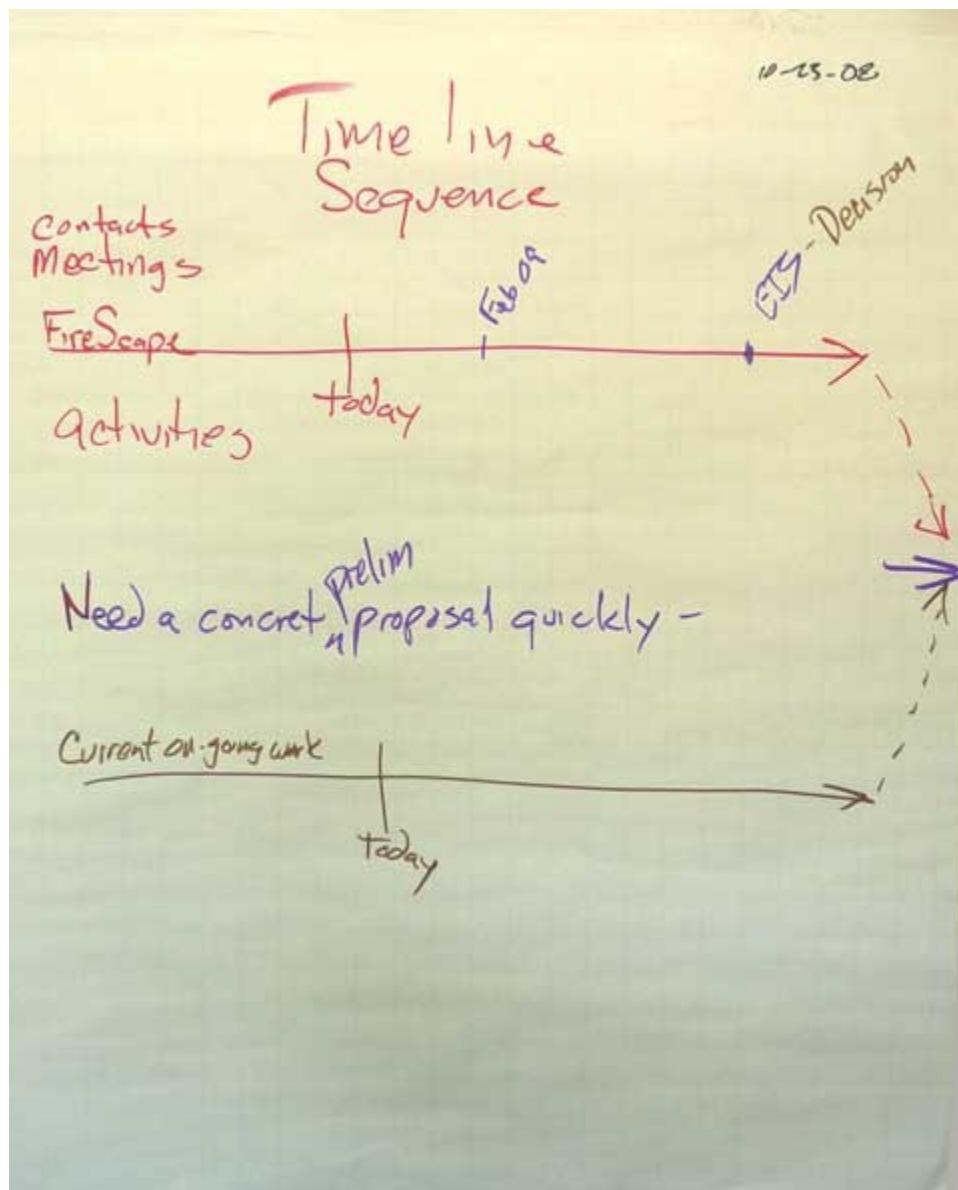 10-23-08
Time line
Sequence
contacts
Meetings
FireScape
activities
today
Feb 09
EIS - Decision
prelim
Need a concret proposal quickly -
Current on-going work
today